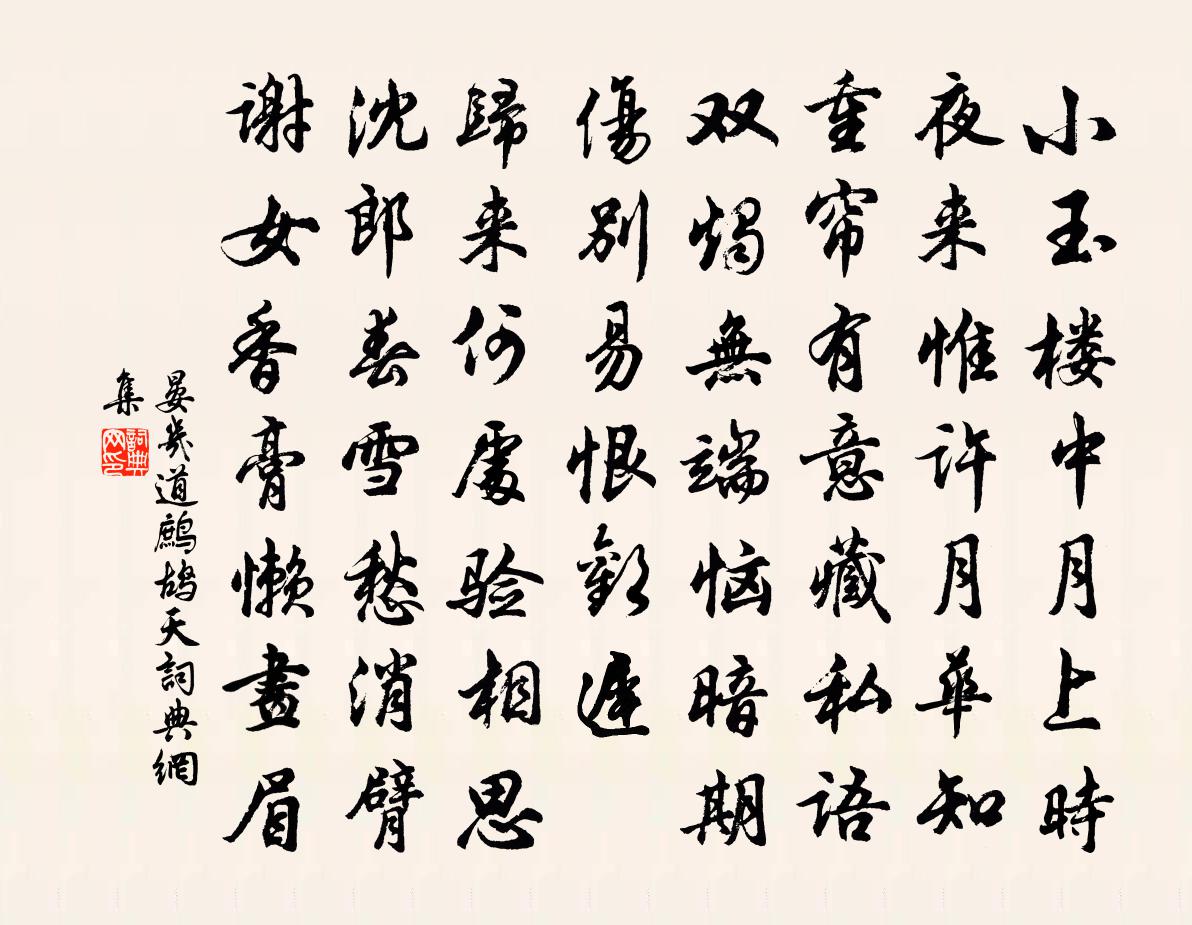 小玉楼中月上時
夜来惟许月華知
重帘有意藏私語
双燭無端恼暗期
傷別易恨歡遲
歸来何處验相思
沈郎春雪愁消臂
谢女香膏懒畫眉
晏幾道鷓鴣天詞典網
集
詞典網印